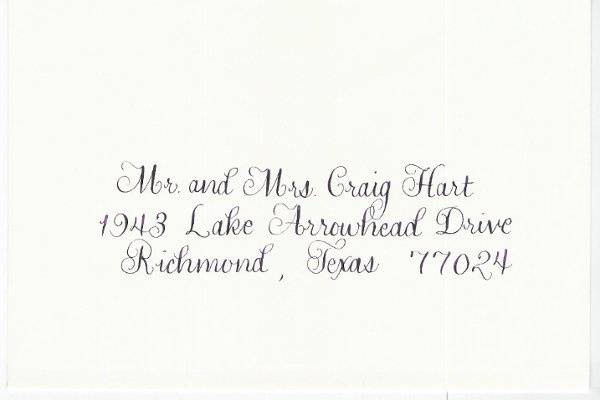 Mr. and Mrs. Craig Hart
1943 Lake Arrowhead Drive
Richmond, Texas 77024